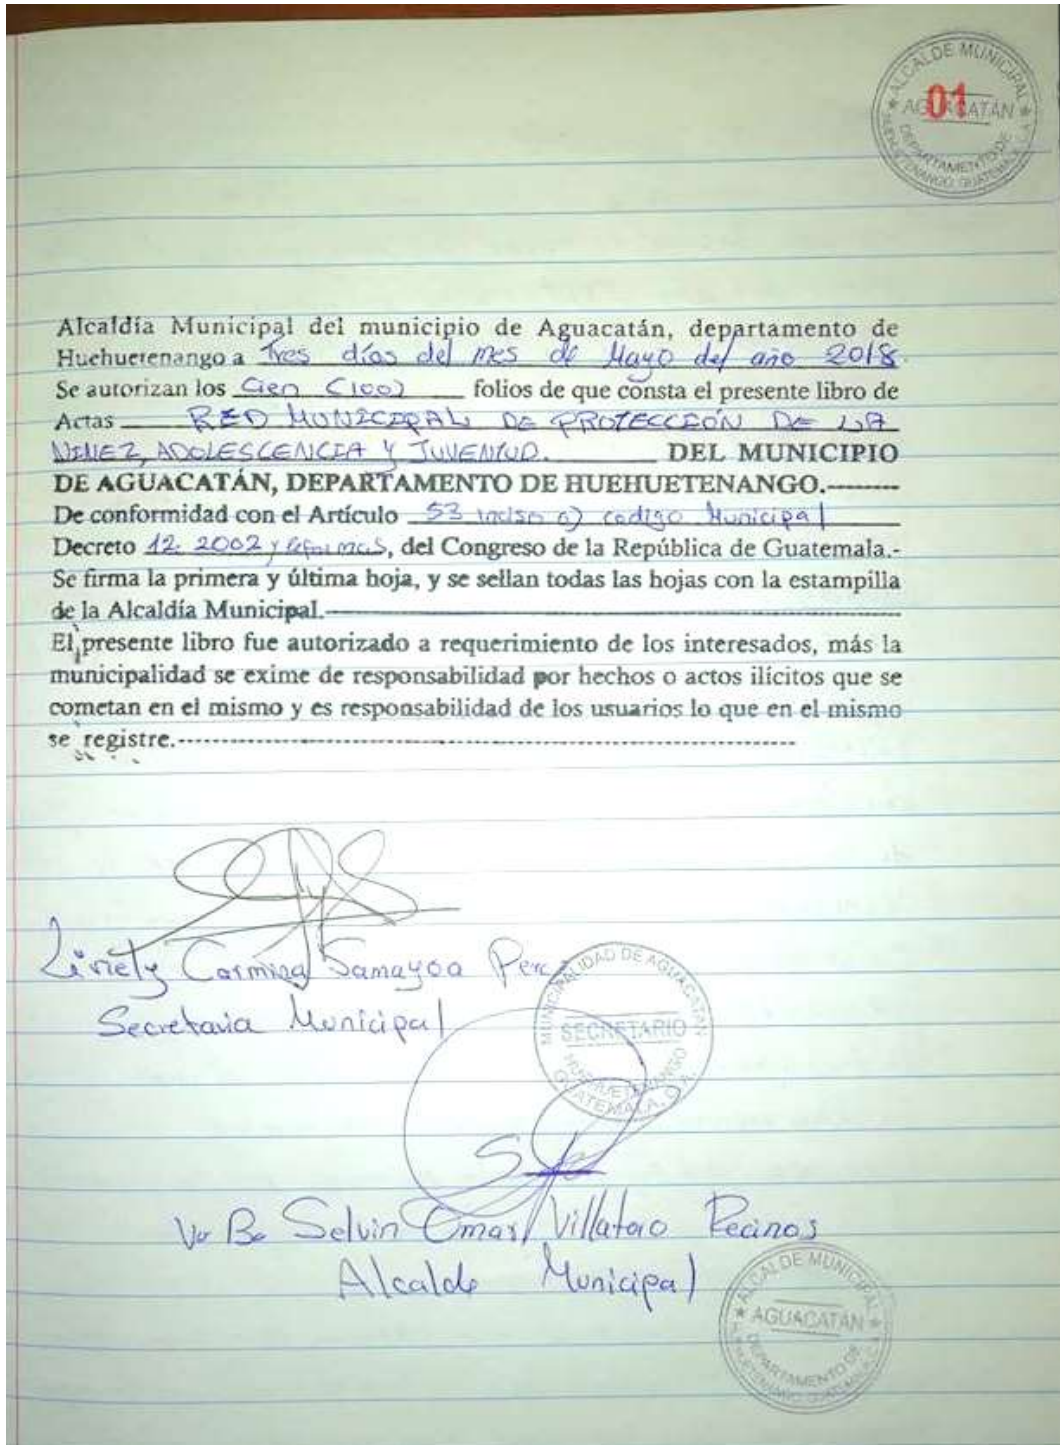 ALCALDE MUNICIPAL
AGUACATÁN
01
DEPARTAMENTO DE
HUEHUETENANGO, GUATEMALA, C.A.
Alcaldía Municipal del municipio de Aguacatán, departamento de
Huehuetenango a Tres días del mes de Mayo del año 2018.
Se autorizan los Cien (100) folios de que consta el presente libro de
Actas RED MUNICIPAL DE PROTECCIÓN DE LA
NIÑEZ, ADOLESCENCIA Y JUVENTUD. DEL MUNICIPIO
DE AGUACATÁN, DEPARTAMENTO DE HUEHUETENANGO.--------
De conformidad con el Artículo 53 inciso a) codigo Municipal
Decreto 12-2002 y reformas, del Congreso de la República de Guatemala.-
Se firma la primera y última hoja, y se sellan todas las hojas con la estampilla
de la Alcaldía Municipal.--------
El presente libro fue autorizado a requerimiento de los interesados, más la
municipalidad se exime de responsabilidad por hechos o actos ilícitos que se
cometan en el mismo y es responsabilidad de los usuarios lo que en el mismo
se registre.--------
Carmina Samayoa
Secretaria Municipal
MUNICIPALIDAD DE AGUACATAN
SECRETARIO
HUEHUETENANGO
GUATEMALA, C.A.
Vo Bo Selvin Omar Villatoro Recinos
Alcalde Municipal
ALCALDE MUNICIPAL
AGUACATÁN
DEPARTAMENTO DE
HUEHUETENANGO, GUATEMALA, C.A.